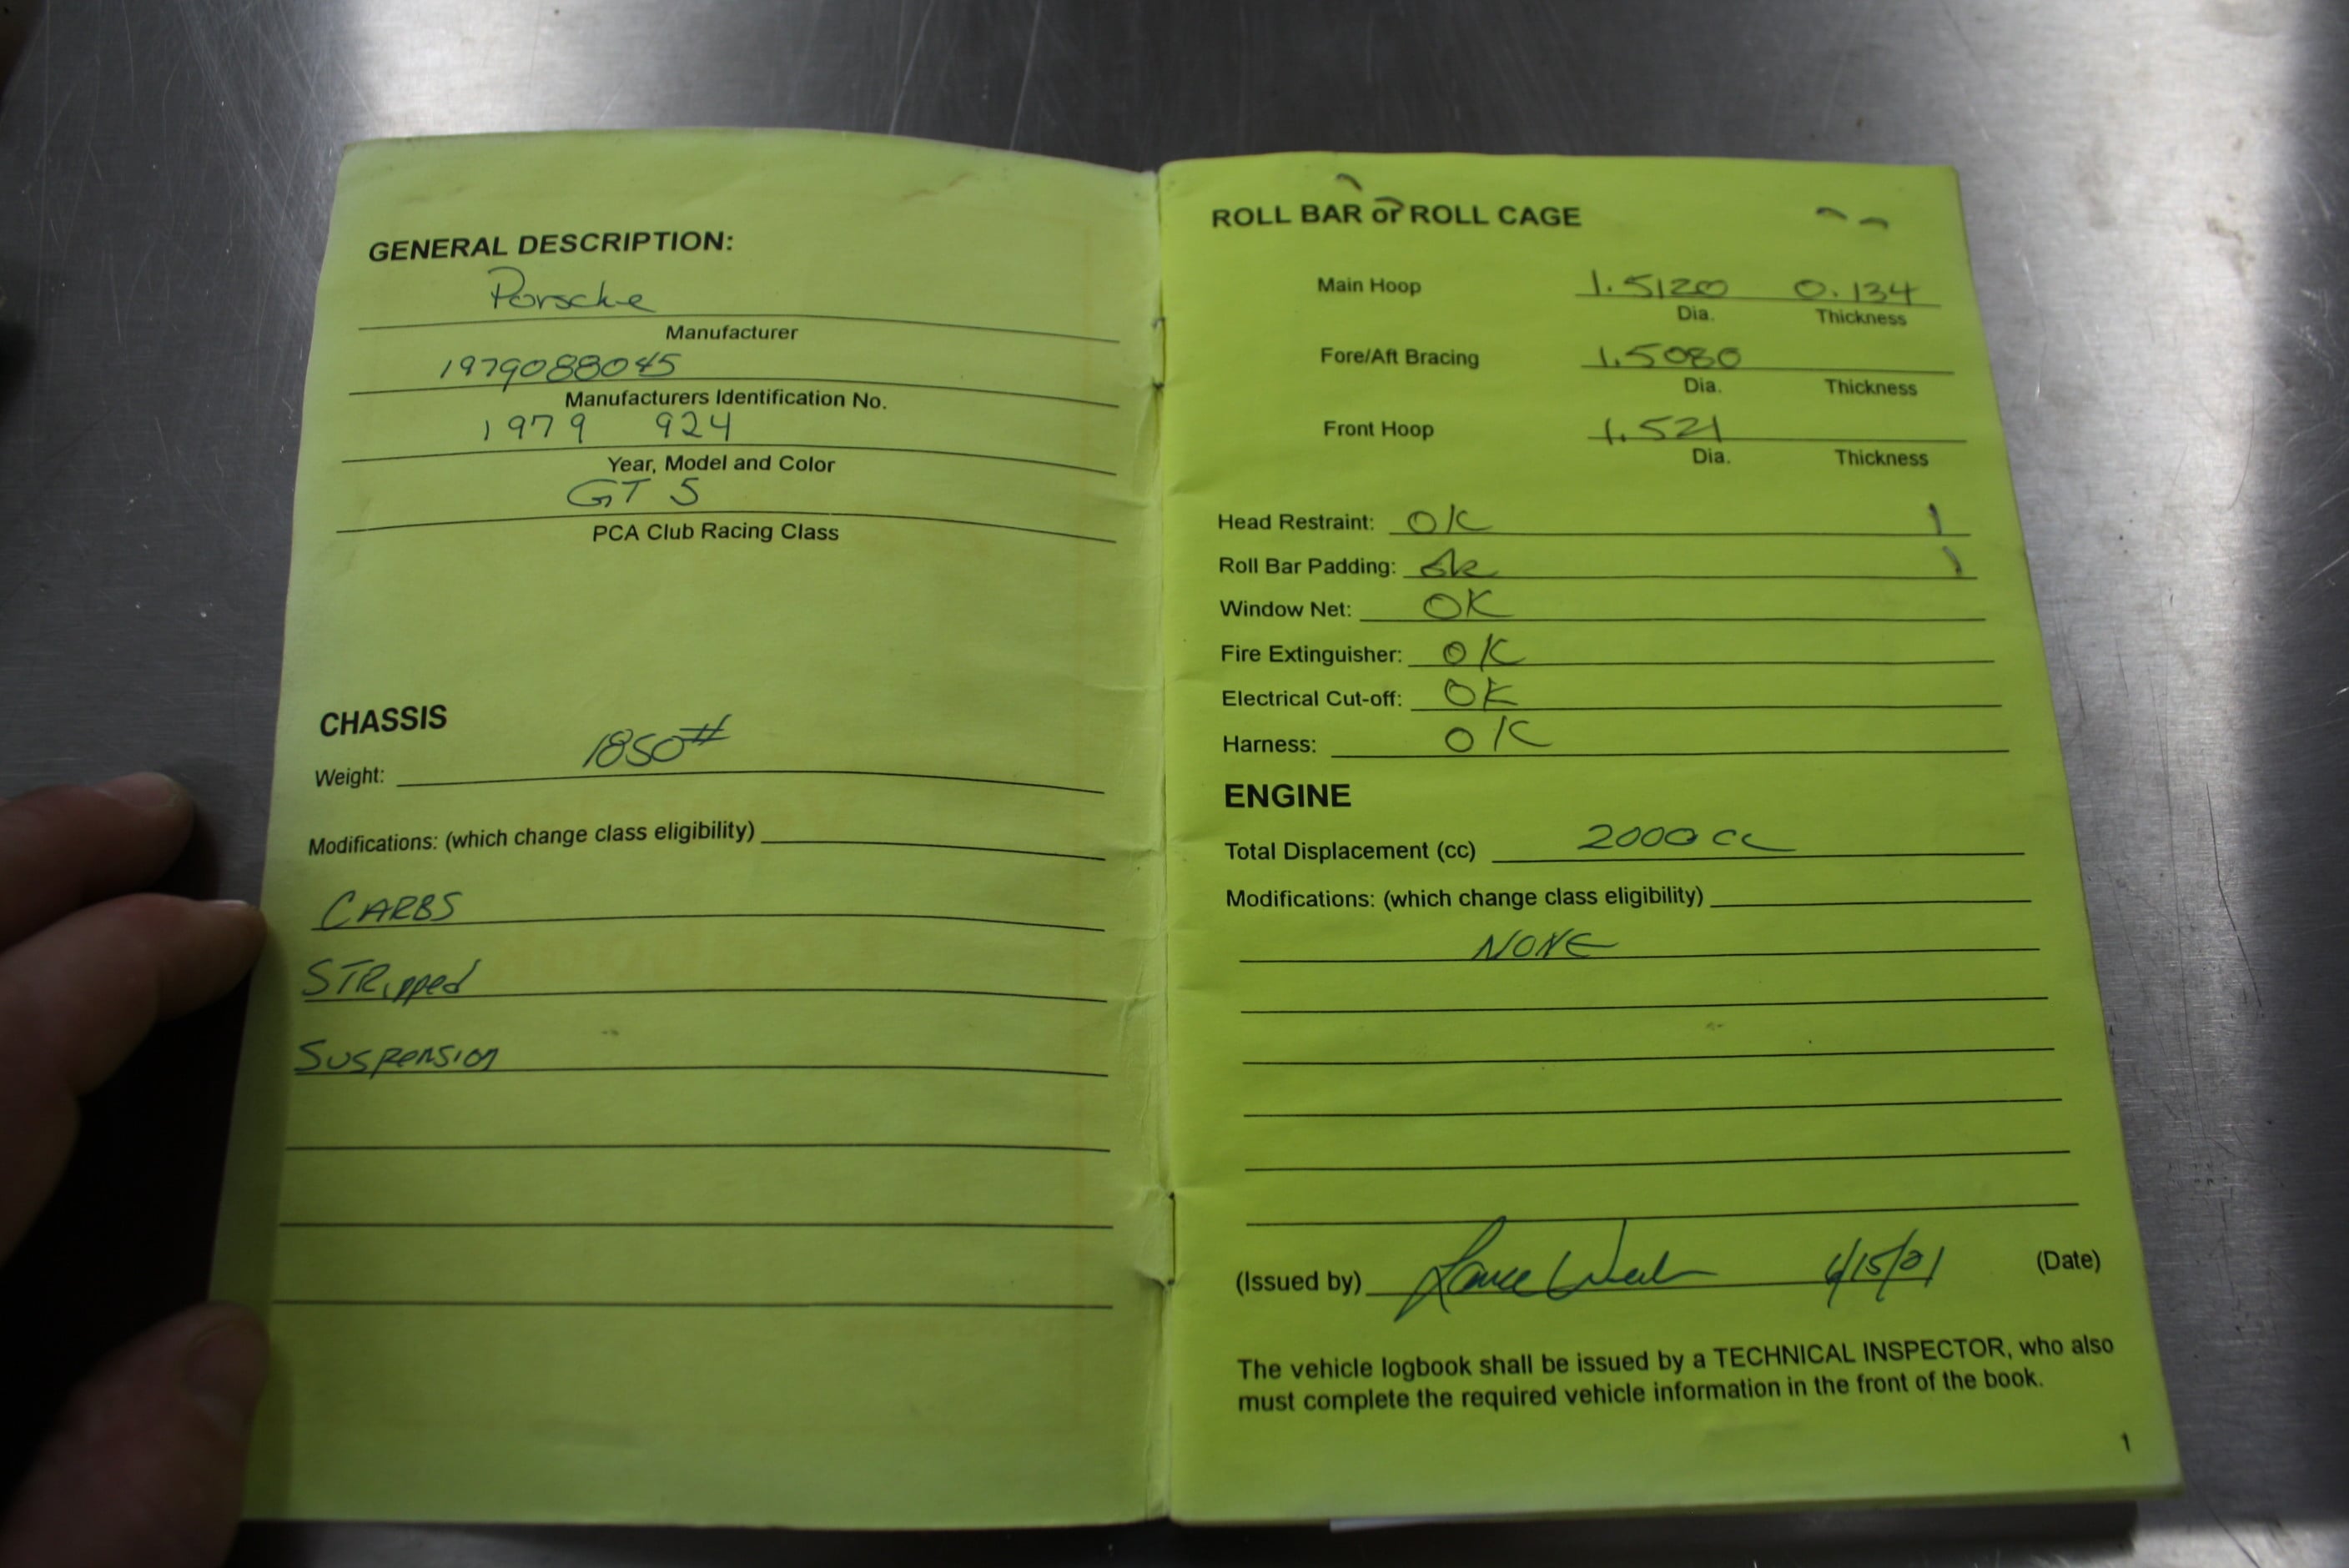 GENERAL DESCRIPTION:
Porsche
Manufacturer
1979088045
Manufacturers Identification No.
1979 924
Year, Model and Color
GT 5
PCA Club Racing Class
CHASSIS
Weight: 1850#
Modifications: (which change class eligibility)
CARBS
STRipped
Suspension
ROLL BAR or ROLL CAGE
Main Hoop 1.5120 0.134
Dia. Thickness
Fore/Aft Bracing 1.5080
Dia. Thickness
Front Hoop 1.521
Dia. Thickness
Head Restraint: OK
Roll Bar Padding: Ok
Window Net: OK
Fire Extinguisher: OK
Electrical Cut-off: OK
Harness: OK
ENGINE
Total Displacement (cc) 2000 cc
Modifications: (which change class eligibility)
NONE
(Issued by) Lance /15/01 (Date)
The vehicle logbook shall be issued by a TECHNICAL INSPECTOR, who also
must complete the required vehicle information in the front of the book.
1